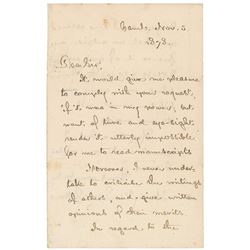 Camb. Nov. 5
1873.
Dear Sir,
It would give me pleasure
to comply with your request,
if it was in my power, but
want of time and eye-sight
render it utterly impossible
for me to read manuscripts.
Moreover, I never under-
take to criticise the writings
of others, and give written
opinions of their merits.
In regard to the